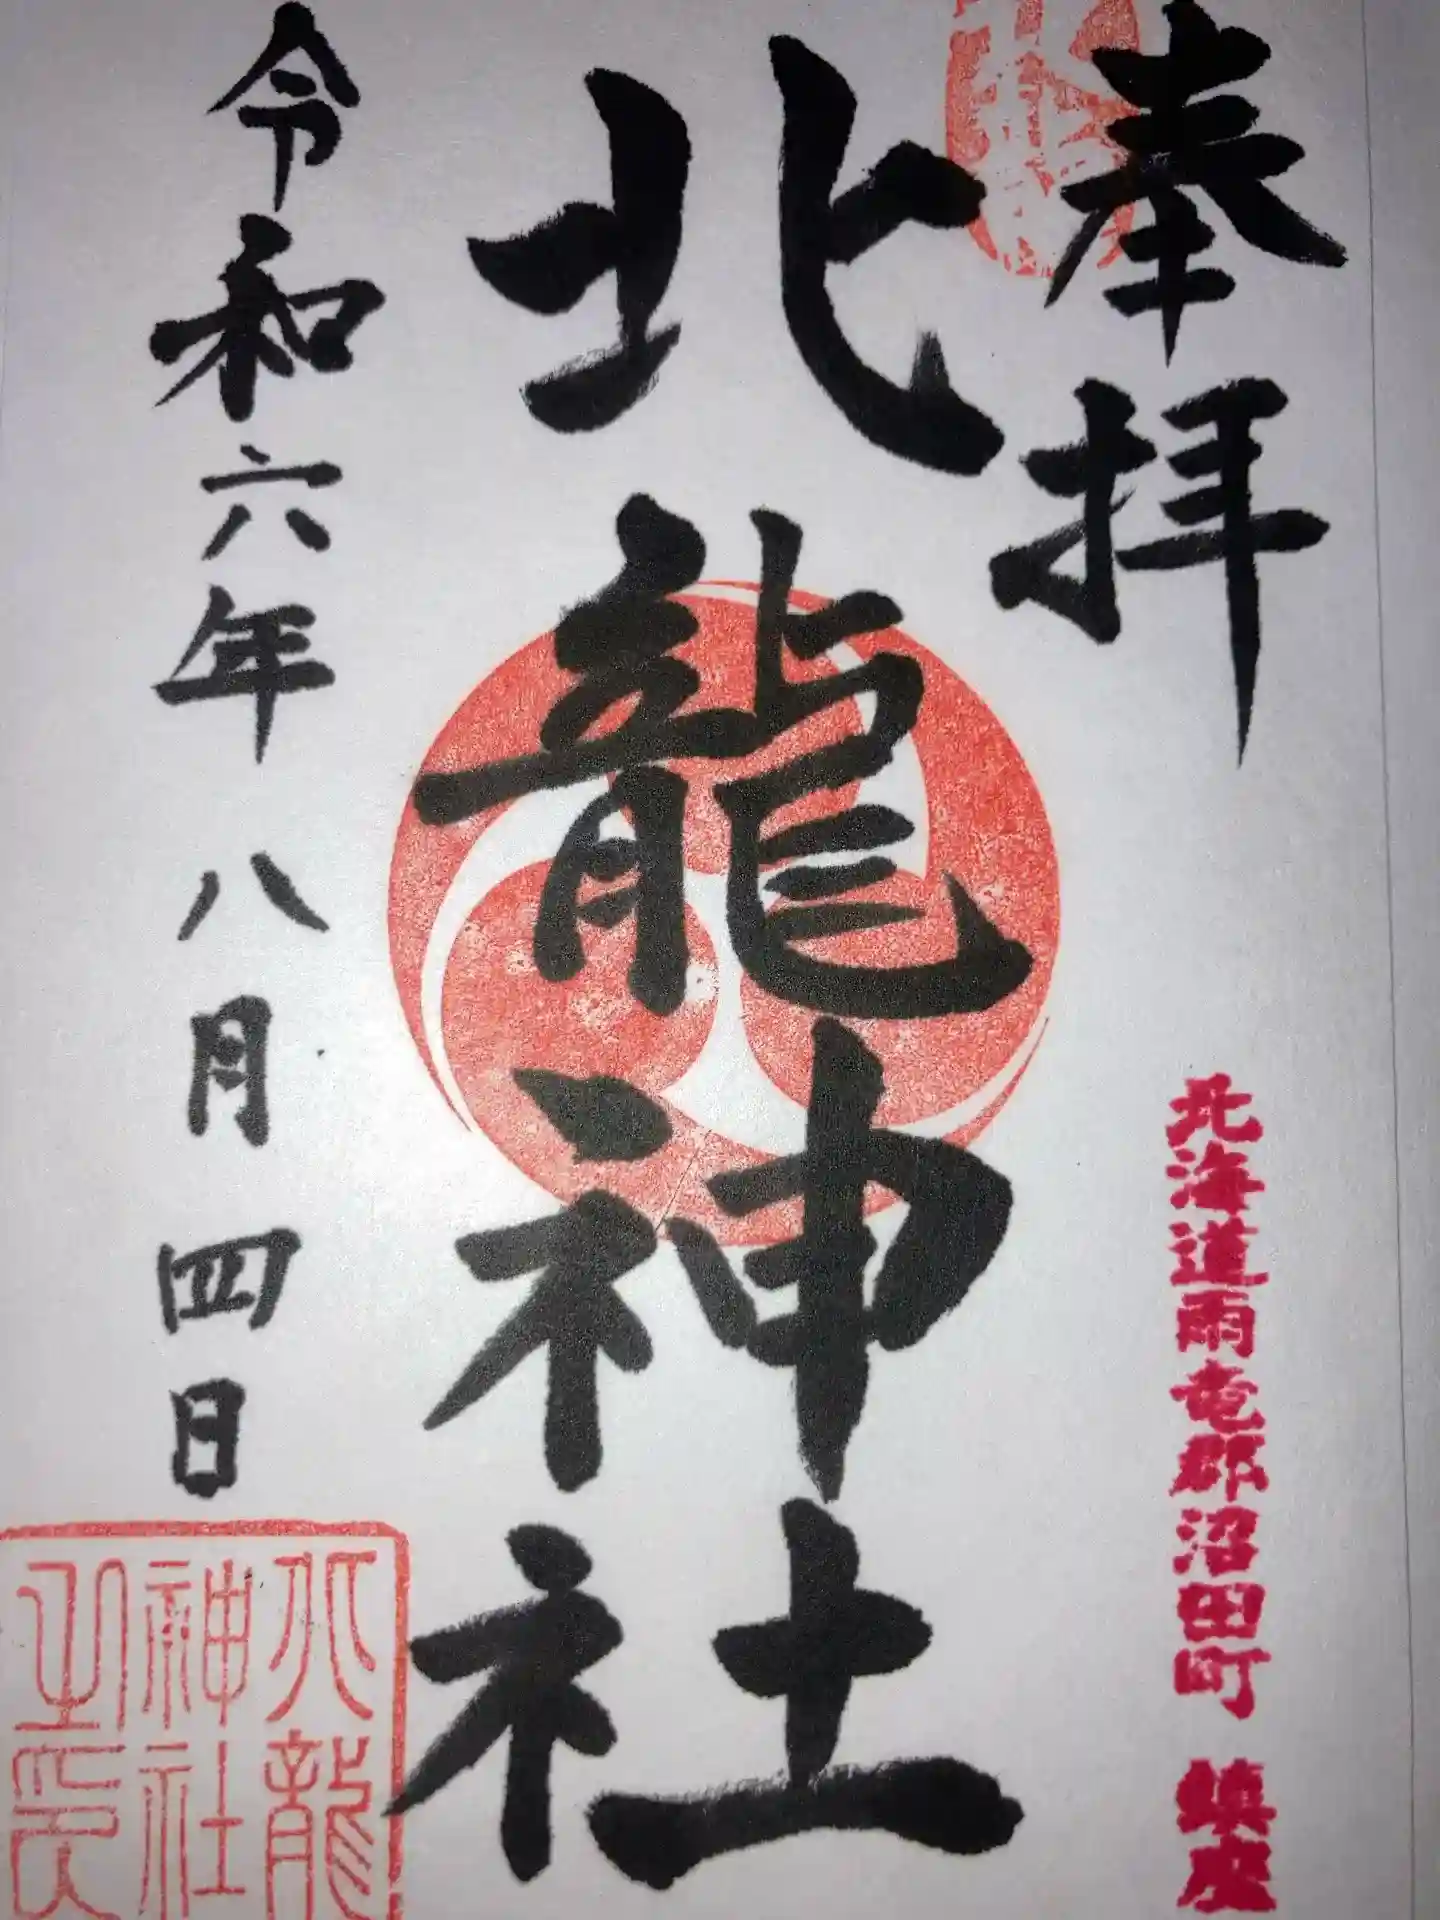 奉拝
北海道雨竜郡沼田町 鎮座
北龍神社
令和六年八月四日
北龍
神社
之印